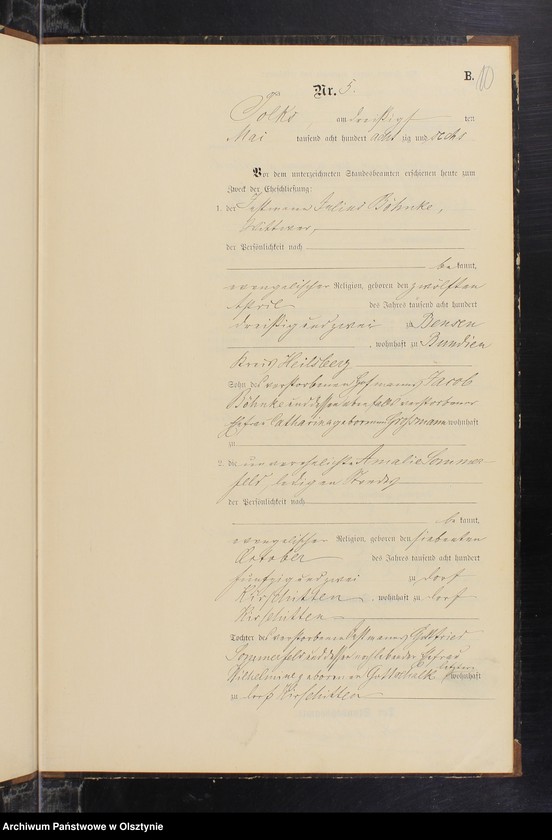 B. 10
Nr. 5.
Tolks, am dreißigsten
Mai tausend acht hundert achtzig und sechs
Vor dem unterzeichneten Standesbeamten erschienen heute zum
Zweck der Eheschließung:
1. der Julius Böhnke,
Wittwer,
der Persönlichkeit nach
be kannt,
evangelischer Religion, geboren den zwölften
April des Jahres tausend acht hundert
dreißig und zwei zu Bensen
, wohnhaft zu Bundien
Kreis Heilsberg
Sohn des verstorbenen Hofmanns Jacob
Böhnke und dessen ebenfalls verstorbener
Ehefrau Catharina geborenen Großmann wohnhaft
zu
2. die unverehelichte Amalie Sommer-
feld, ledigen Standes
der Persönlichkeit nach
be kannt,
evangelischer Religion, geboren den siebenten
October des Jahres tausend acht hundert
fünfzig und zwei zu Dorf
Kirschitten, wohnhaft zu Dorf
Kirschitten
Tochter des verstorbenen Gottfried
Sommerfeld und dessen Ehefrau
Wilhelmine geborenen Gottschalk letztere wohnhaft
zu Dorf Kirschitten
Archiwum Państwowe w Olsztynie